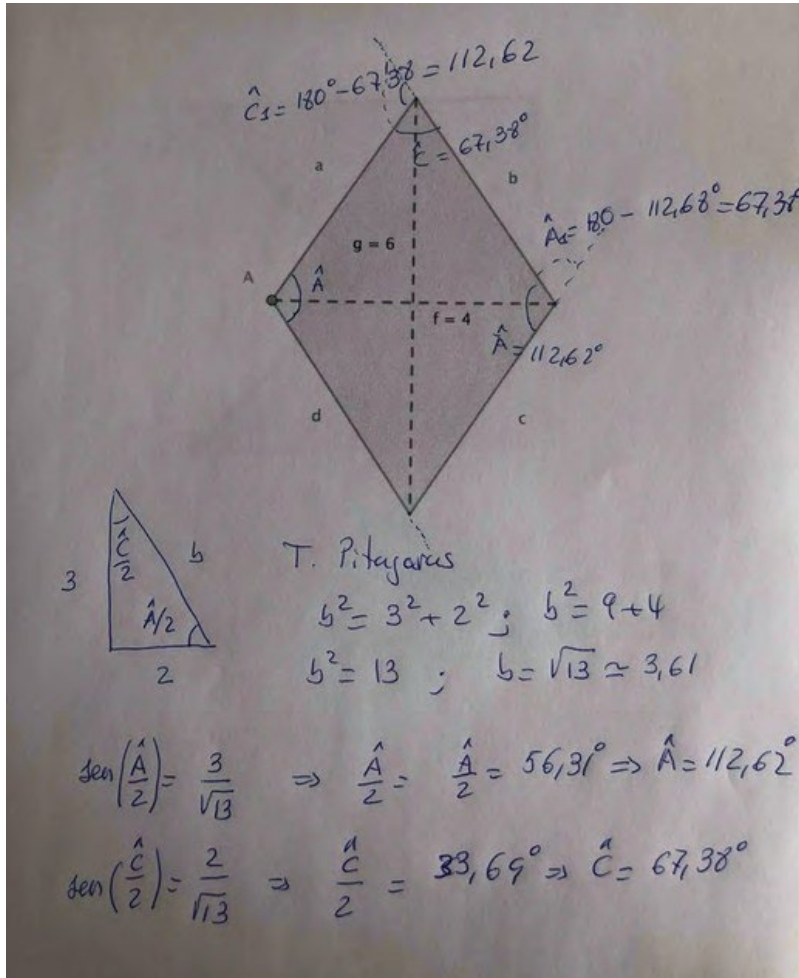 Ĉ₁ = 180° - 67,38 = 112,62
Ĉ = 67,38°
a
b
Â₁ = 180 - 112,68° = 67,38°
g = 6
A
Â
f = 4
Â = 112,62°
d
c
Ĉ/2
3
b
Â/2
2
T. Pitagoras
b² = 3² + 2² ; b² = 9 + 4
b² = 13 ; b = √13 ≃ 3,61
sen(Â/2) = 3/√13 ⇒ Â/2 = Â/2 = 56,31° ⇒ Â = 112,62°
sen(Ĉ/2) = 2/√13 ⇒ Ĉ/2 = 33,69° ⇒ Ĉ = 67,38°